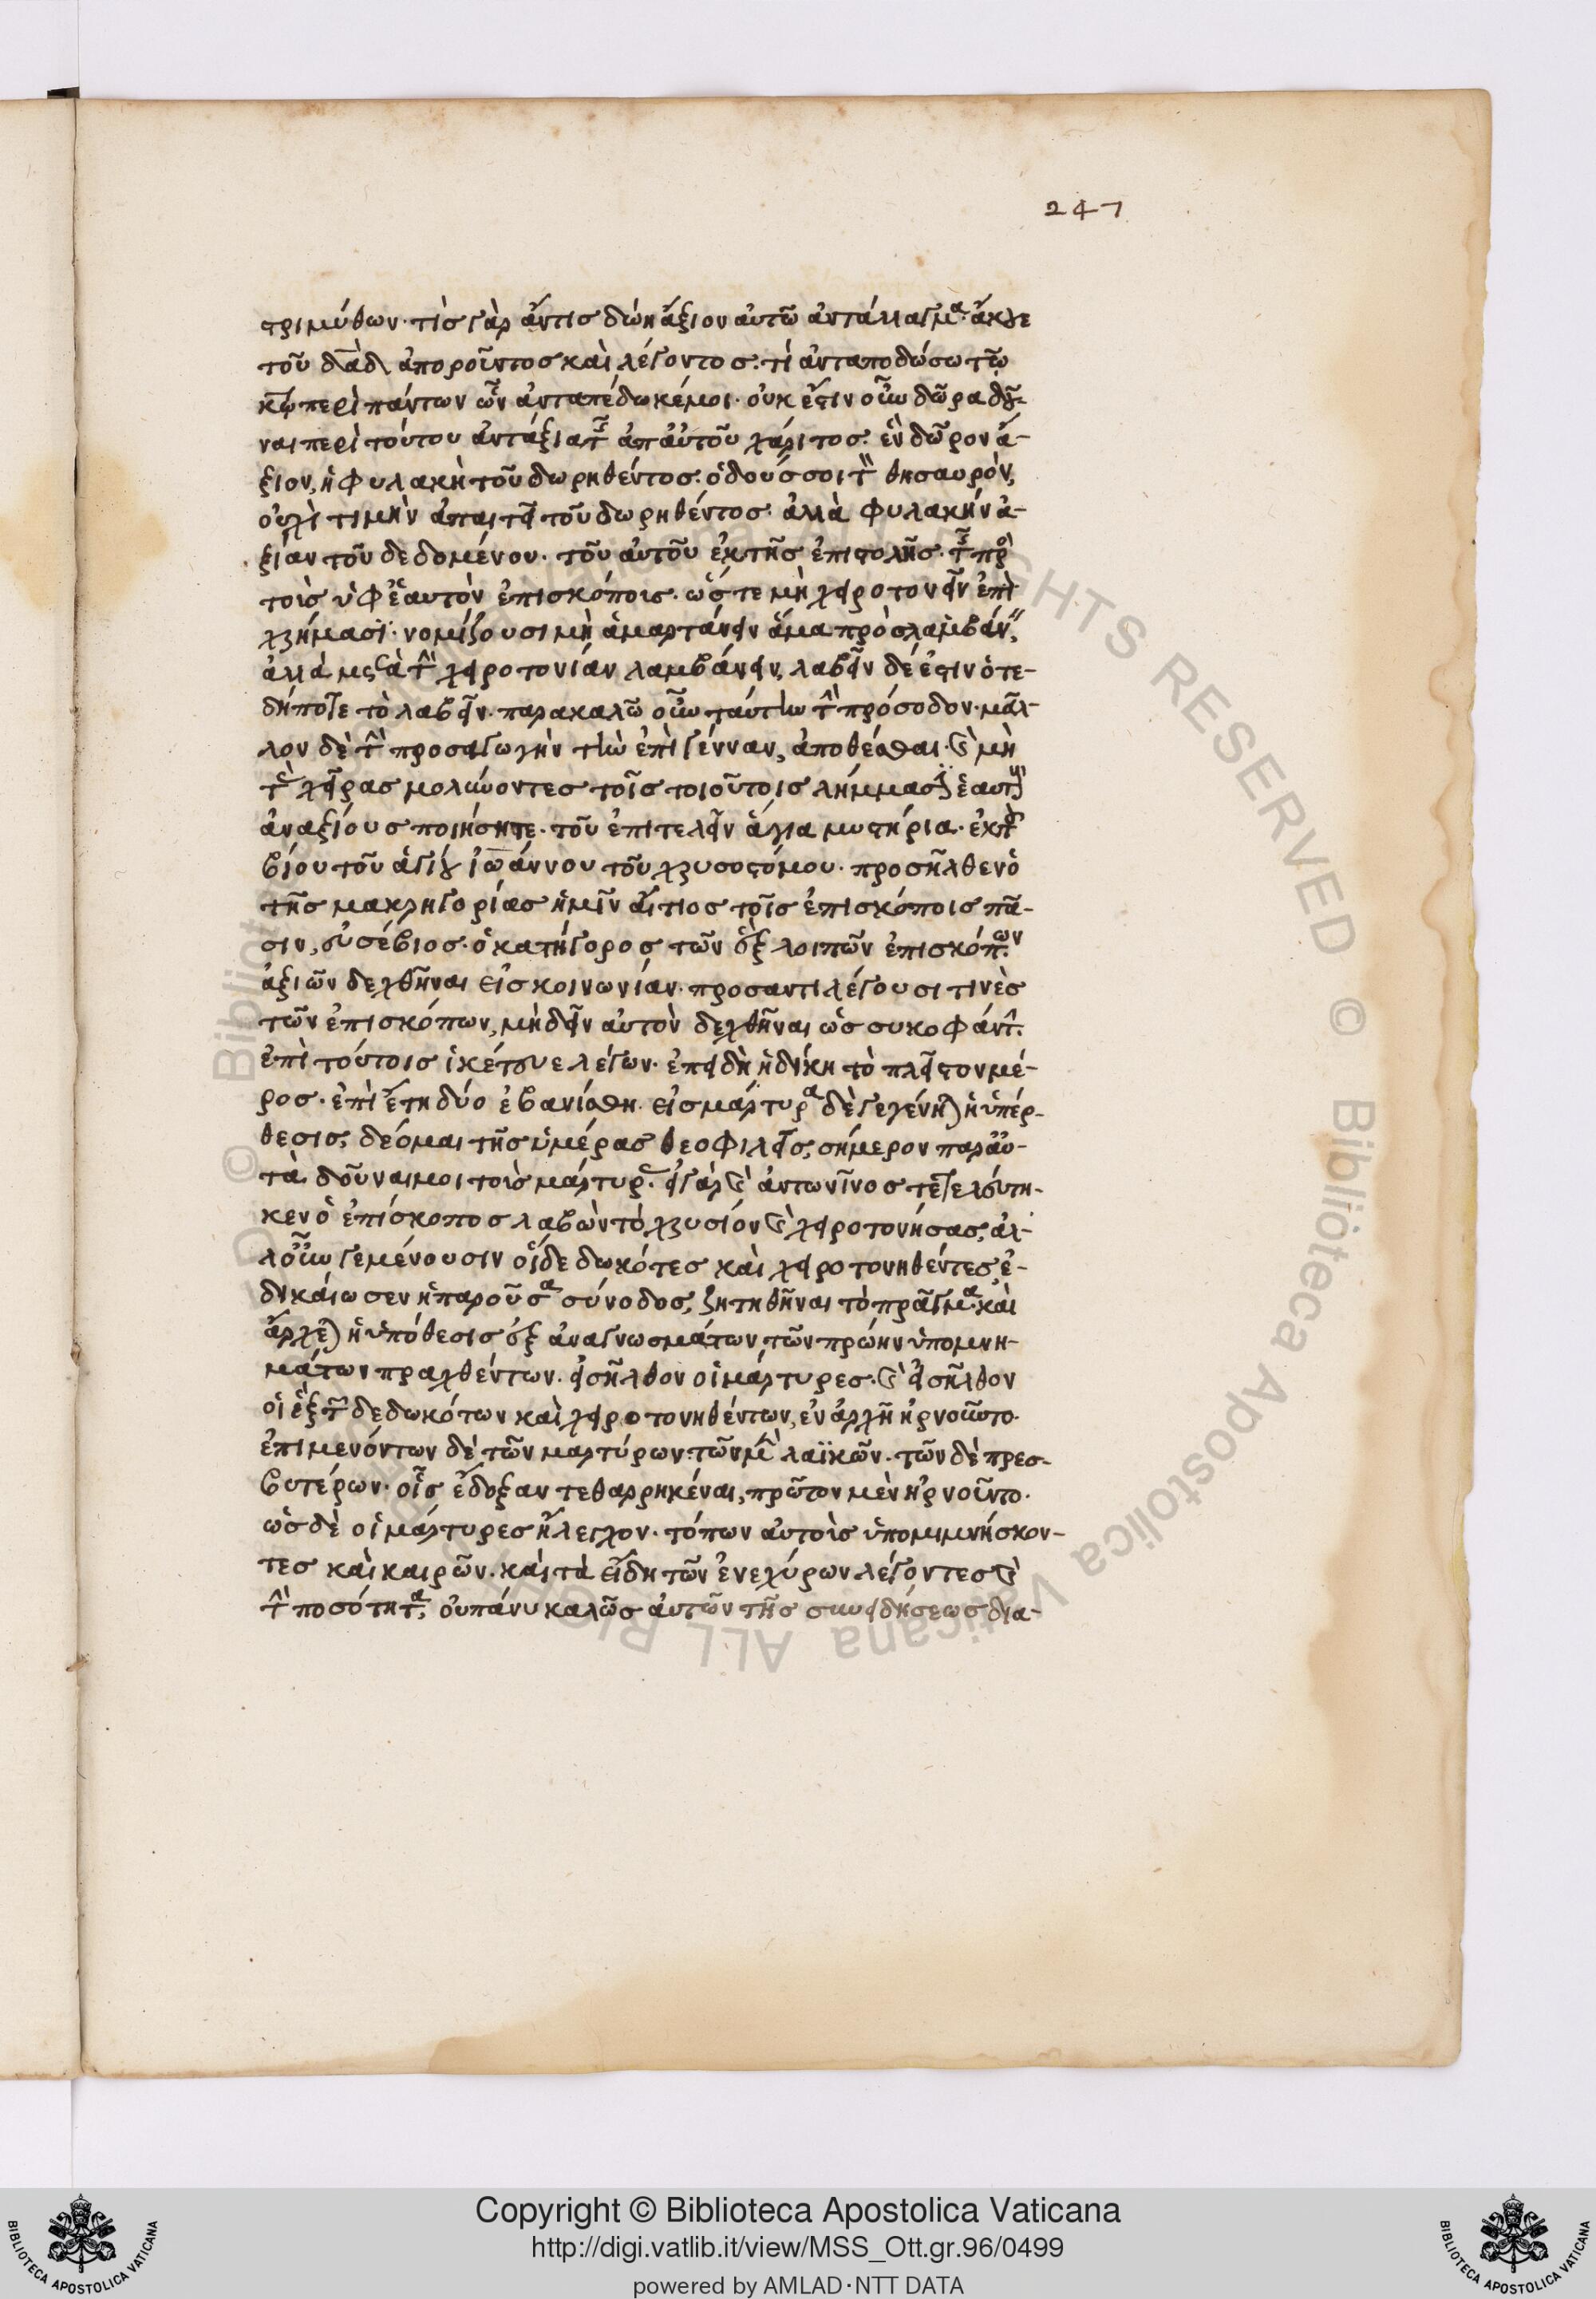 247
τριμύθων· τίς γὰρ ἄντις δώη ἄξιον αὐτῶ ἀντάλλαγμα· ἄκουε
τοῦ δᾱδ ἀποροῦντος καὶ λέγοντος· τί ἀνταποδώσω τῶ
κω περὶ πάντων ὧν ἀνταπέδωκέ μοι· οὐκ ἔστιν οὖν δῶρα δοῦ-
ναι περὶ τούτου ἀντάξια τῆς ἀπ αὐτοῦ χάριτος· ἓν δῶρον ἄ-
ξιον, ἡ φυλακὴ τοῦ δωρηθέντος· ὁ δούς σοι τὸν θησαυρὸν,
οὐχὶ τιμὴν ἀπαιτεῖ τοῦ δωρηθέντος· ἀλλὰ φυλακήν ἀ-
ξίαν τοῦ δεδομένου· τοῦ αὐτοῦ ἐκ τῆς ἐπιστολῆς τῆς πρὸς
τοὺς ὑφ ἑαυτὸν ἐπισκόποις· ὥστε μὴ χειροτονεῖν ἐπὶ
χρήμασι· νομίζουσι μὴ ἁμαρτάνειν ἅμα προσλαμβάνειν,
ἀλλὰ μετὰ τὴν χειροτονίαν λαμβάνειν, λαβεῖν δέ ἐστιν ὁτε-
δήποτε τὸ λαβεῖν· παρακαλῶ οὖν ταύτην τὴν πρόσοδον· μᾶλ-
λον δὲ τὴν προσαγωγὴν τὴν ἐπὶ γέενναν, ἀποθέσθαι· καὶ μὴ
τὰς χεῖρας μολύνοντες τοῖς τοιούτοις λήμμασιν ἑαυτοὺς
ἀναξίους ποιήσητε· τοῦ ἐπιτελεῖν ἅγια μυστήρια· ἐκ τοῦ
βίου τοῦ ἁγίου ἰωάννου τοῦ χρυσοστόμου· προσῆλθεν ὁ
τῆς μακρηγορίας ἡμῖν αἴτιος τοῖς ἐπισκόποις πᾶ-
σιν, εὐσέβιος· ὁ κατήγορος τῶν ἓξ λοιπῶν ἐπισκόπων
ἀξιῶν δεχθῆναι εἰς κοινωνίαν· προσαντιλέγουσι τινὲς
τῶν ἐπισκόπων, μὴ δεῖν αὐτὸν δεχθῆναι ὡς συκοφάντην·
ἐπὶ τούτοις ἱκέτευε λέγων· ἐπειδὴ ἡ δίκη τὸ πλεῖστον μέ-
ρος· ἐπὶ ἔτη δύο ἐβασανίσθη εἰς μάρτυρα δὲ γεγένηται ἡ ὑπέρ-
θεσις, δέομαι τῆς ὑμέρας θεοφιλείας, σήμερον παραυ-
τὰ δοῦναι μοι τοὺς μάρτυρας· εἰ γὰρ καὶ ἀντωνῖνος τετελεύτη-
κεν ὁ ἐπίσκοπος λαβὼν τὸ χρυσίον καὶ χειροτονήσας, ἀλ-
λ οὖν γε μένουσιν οἱ δεδωκότες καὶ χειροτονηθέντες, ἐ-
δικαίωσεν ἡ παροῦσα σύνοδος, ζητηθῆναι τὸ πρᾶγμα· καὶ
ἄρχεται ἡ ὑπόθεσις ἐξ ἀναγνωσμάτων τῶν πρώην ὑπομνη-
μάτων πραχθέντων· εἰσῆλθον οἱ μάρτυρες· καὶ εἰσῆλθον
οἱ ἓξ τῶν δεδωκότων καὶ χειροτονηθέντων, ἐν ἀρχῆ ἠρνοῦντο·
ἐπιμενόντων δὲ τῶν μαρτύρων· τῶν μὲν λαϊκῶν· τῶν δὲ πρεσ-
βυτέρων· οἷς ἔδοξαν τεθαρρηκέναι, πρῶτον μὲν ἠρνοῦντο·
ὡς δὲ οἱ μάρτυρες ἤλεγχον· τόπων αὐτοὺς ὑπομιμνήσκον-
τες καὶ καιρῶν· καὶ τὰ εἴδη τῶν ἐνεχύρων λέγοντες καὶ
τὴν ποσότητα, οὐ πάνυ καλῶς αὐτῶν τῆς συνειδήσεως δια-
Copyright © Biblioteca Apostolica Vaticana
http://digi.vatlib.it/view/MSS_Ott.gr.96/0499
powered by AMLAD·NTT DATA
BIBLIOTECA APOSTOLICA VATICANA
BIBLIOTECA APOSTOLICA VATICANA